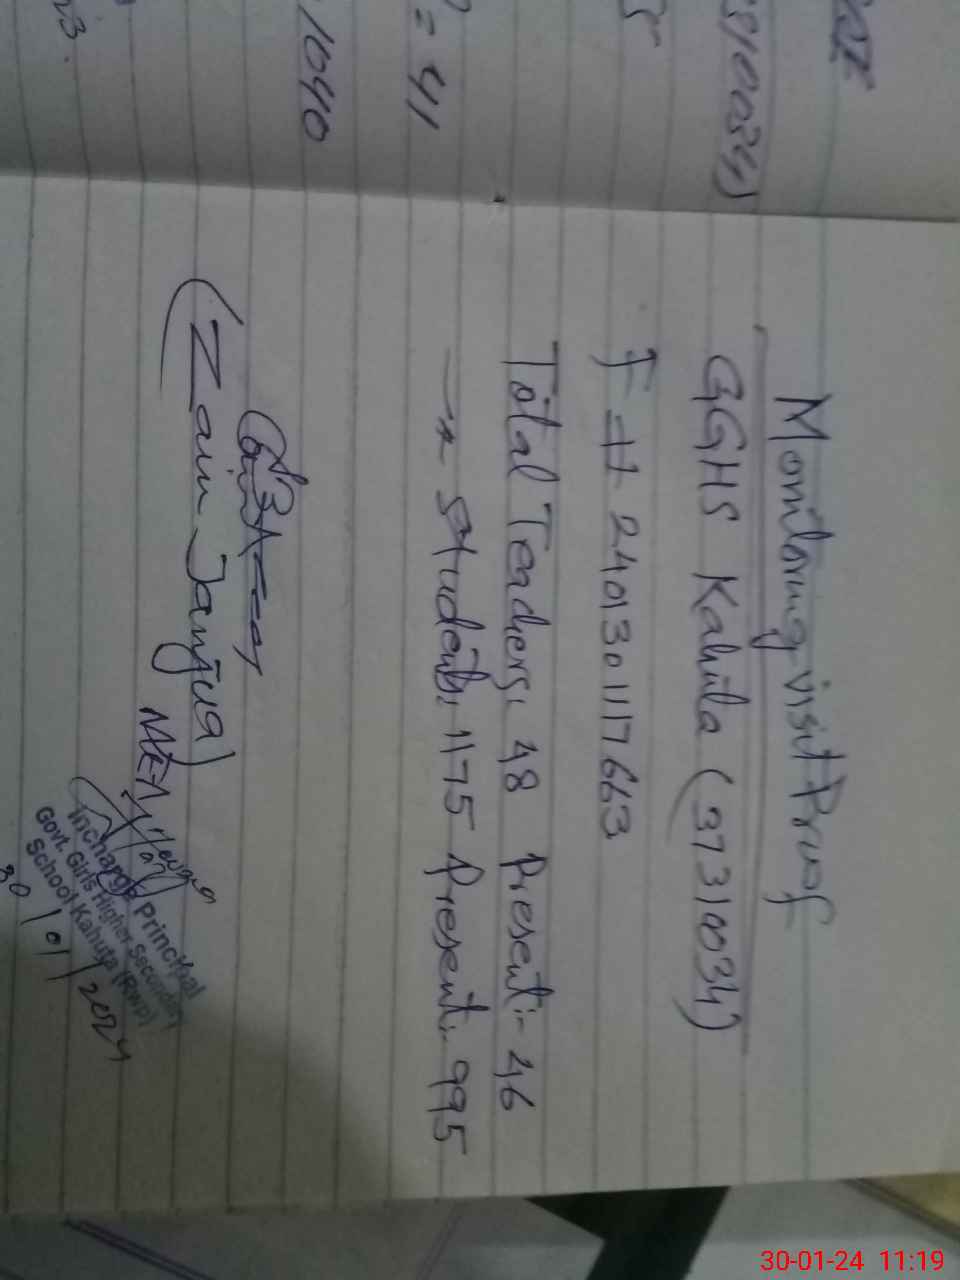 /1040
= 41
Monitoring visit Proof
GGHS Kahuta (37310034)
F # 2401301117663
Total Teachers: 48 Present:- 46
—〃 Students: 1175 Present:- 995
(Zain Janjua)
MEA
Incharge Principal
Govt. Girls Higher Secondary
School Kahuta (RWP)
30/01/2024
30-01-24 11:19